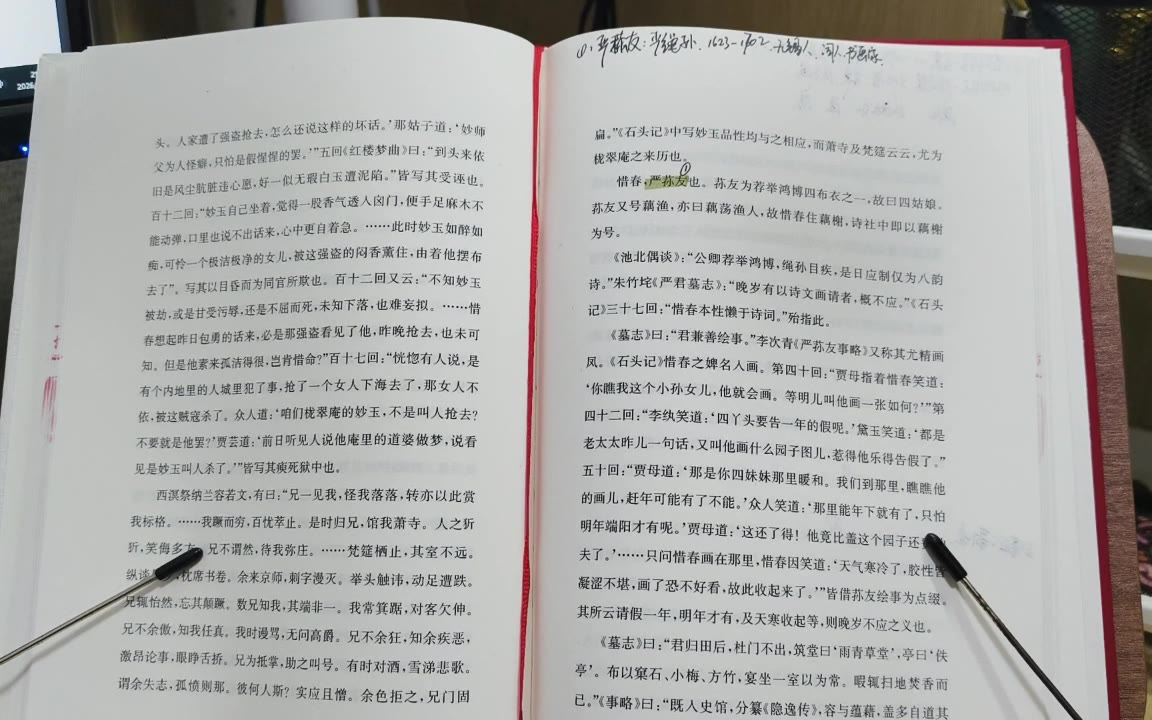 头。人家遭了强盗抢去，怎么还说这样的坏话。’那姑子道：‘妙师
父为人怪癖，只怕是假惺惺的罢。’”五回《红楼梦曲》曰：“到头来依
旧是风尘肮脏违心愿，好一似无瑕白玉遭泥陷。”皆写其受诬也。
百十二回：“妙玉自己坐着，觉得一股香气透入囟门，便手足麻木不
能动弹，口里也说不出话来，心中更自着急。……此时妙玉如醉如
痴，可怜一个极洁极净的女儿，被这强盗的闷香薰住，由着他摆布
去了”。写其以目昏而为同官所欺也。百十二回又云：“不知妙玉
被劫，或是甘受污辱，还是不屈而死，未知下落，也难妄拟。……惜
春想起昨日包勇的话来，必是那强盗看见了他，昨晚抢去，也未可
知。但是他素来孤洁得很，岂肯惜命？”百十七回：“恍惚有人说，是
有个内地里的人城里犯了事，抢了一个女人下海去了，那女人不
依，被这贼寇杀了。众人道：‘咱们栊翠庵的妙玉，不是叫人抢去？
不要就是他罢？’贾芸道：‘前日听见人说他庵里的道婆做梦，说看
见是妙玉叫人杀了。’”皆写其瘐死狱中也。
西溟祭纳兰容若文，有曰：“兄一见我，怪我落落，转亦以此赏
我标格。……我蹶而穷，百忧萃止。是时归兄，馆我萧寺。人之狺
狺，笑侮多方，兄不谓然，待我弥庄。……梵筵栖止，其室不远。
纵谈 ，枕席书卷。余来京师，刺字漫灭。举头触讳，动足遭跌。
兄辄怡然，忘其颠蹶。数兄知我，其端非一。我常箕踞，对客欠伸。
兄不余傲，知我任真。我时谩骂，无问高爵。兄不余狂，知余疾恶，
激昂论事，眼睁舌挢。兄为抵掌，助之叫号。有时对酒，雪涕悲歌。
谓余失志，孤愤则那。彼何人斯？实应且憎。余色拒之，兄门固
①、严荪友：严绳孙、1623-1702、无锡人、诗人、书画家。
扃。”《石头记》中写妙玉品性均与之相应，而萧寺及梵筵云云，尤为
栊翠庵之来历也。
惜春，严荪友①也。荪友为荐举鸿博四布衣之一，故曰四姑娘。
荪友又号藕渔，亦曰藕荡渔人，故惜春住藕榭，诗社中即以藕榭
为号。
《池北偶谈》：“公卿荐举鸿博，绳孙目疾，是日应制仅为八韵
诗。”朱竹垞《严君墓志》：“晚岁有以诗文画请者，概不应。”《石头
记》三十七回：“惜春本性懒于诗词。”殆指此。
《墓志》曰：“君兼善绘事。”李次青《严荪友事略》又称其尤精画
凤。《石头记》惜春之婢名入画。第四十回：“贾母指着惜春笑道：
‘你瞧我这个小孙女儿，他就会画。等明儿叫他画一张如何？’”第
四十二回：“李纨笑道：‘四丫头要告一年的假呢。’黛玉笑道：‘都是
老太太昨儿一句话，又叫他画什么园子图儿，惹得他乐得告假了。”
五十回：“贾母道：‘那是你四妹妹那里暖和。我们到那里，瞧瞧他
的画儿，赶年可能有了不能。’众人笑道：‘那里能年下就有了，只怕
明年端阳才有呢。’贾母道：‘这还了得！他竟比盖这个园子还
夫了。’……只问惜春画在那里，惜春因笑道：‘天气寒冷了，胶性皆
凝涩不堪，画了恐不好看，故此收起来了。’”皆借荪友绘事为点缀。
其所云请假一年，明年才有，及天寒收起等，则晚岁不应之义也。
《墓志》曰：“君归田后，杜门不出，筑堂曰‘雨青草堂’，亭曰‘佚
亭’。布以窠石、小梅、方竹，宴坐一室以为常。暇辄扫地焚香而
已。”《事略》曰：“既入史馆，分纂《隐逸传》，容与蕴藉，盖多自道其